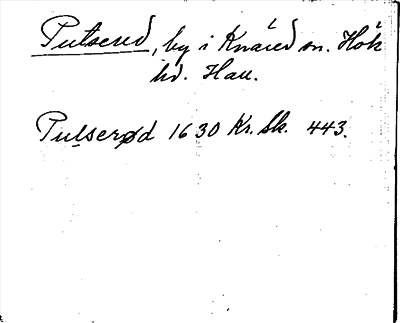 Putsered, by i Knäred sn. Hök
hd. Hall.
Pulserød 1630 Kr. Sk. 443.